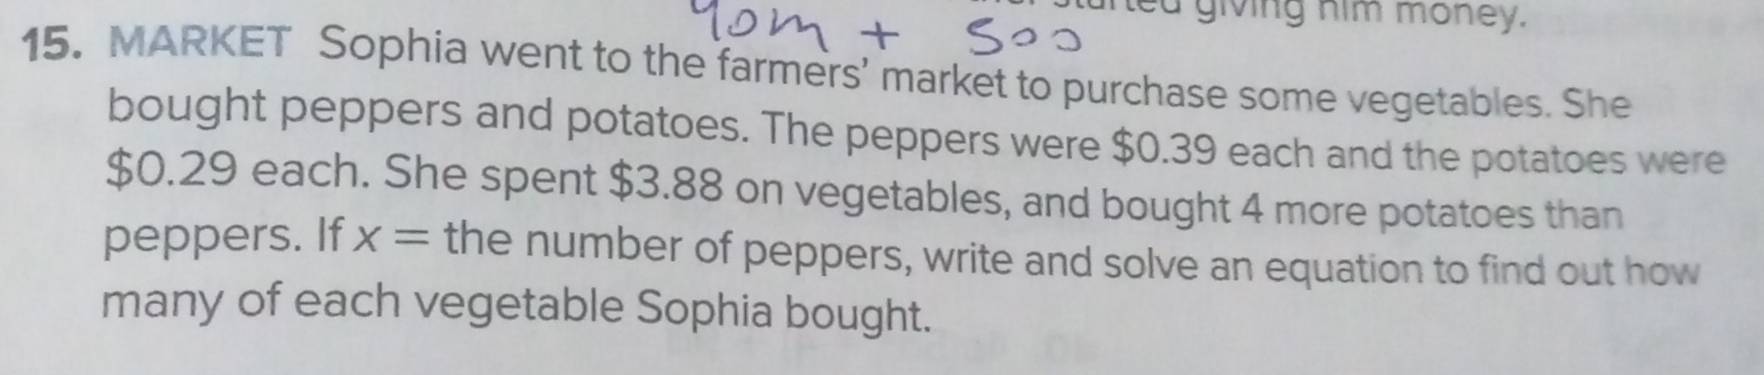 giving him money.
40m + 500
15. MARKET Sophia went to the farmers' market to purchase some vegetables. She
bought peppers and potatoes. The peppers were $0.39 each and the potatoes were
$0.29 each. She spent $3.88 on vegetables, and bought 4 more potatoes than
peppers. If x = the number of peppers, write and solve an equation to find out how
many of each vegetable Sophia bought.